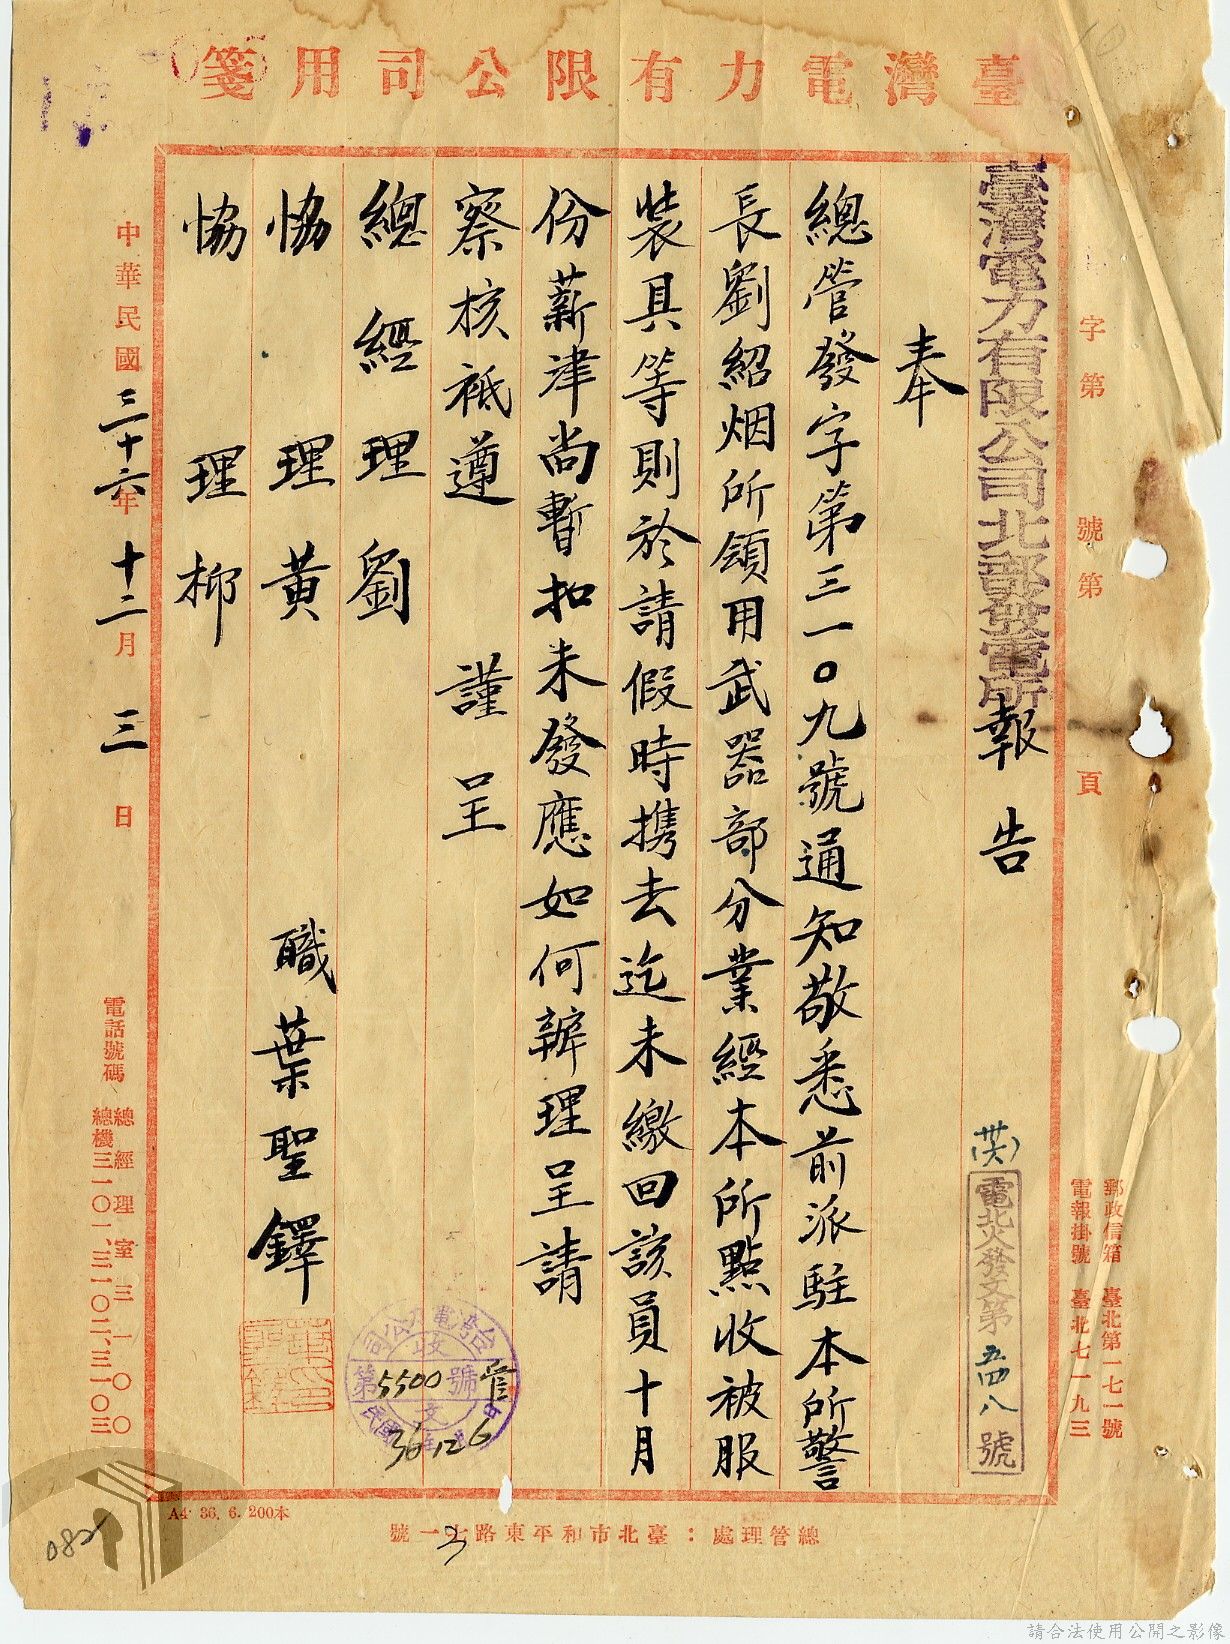 臺灣電力有限公司用箋
字第　號第　頁
郵政信箱　臺北第一七一號
電報掛號　臺北七一九三
臺灣電力有限公司北部發電所報告
電北火發文第五四八號
奉
總管發字第三一〇九號通知敬悉前派駐本所警
長劉紹烟所領用武器部分業經本所點收被服
裝具等則於請假時携去迄未繳回該員十月
份薪津尚暫扣未發應如何辦理呈請
察核祗遵　謹呈
總經理劉
協理黃
協理柳
職葉聖鐸
台灣電力公司
收文
第5500號
管
民國36年12月6日
中華民國三十六年十二月三日
電話號碼
總經理室三一〇〇
總機三一〇一、三一〇二、三一〇三
A4· 36. 6. 200本
總管理處：臺北市和平東路一號
082
請合法使用公開之影像